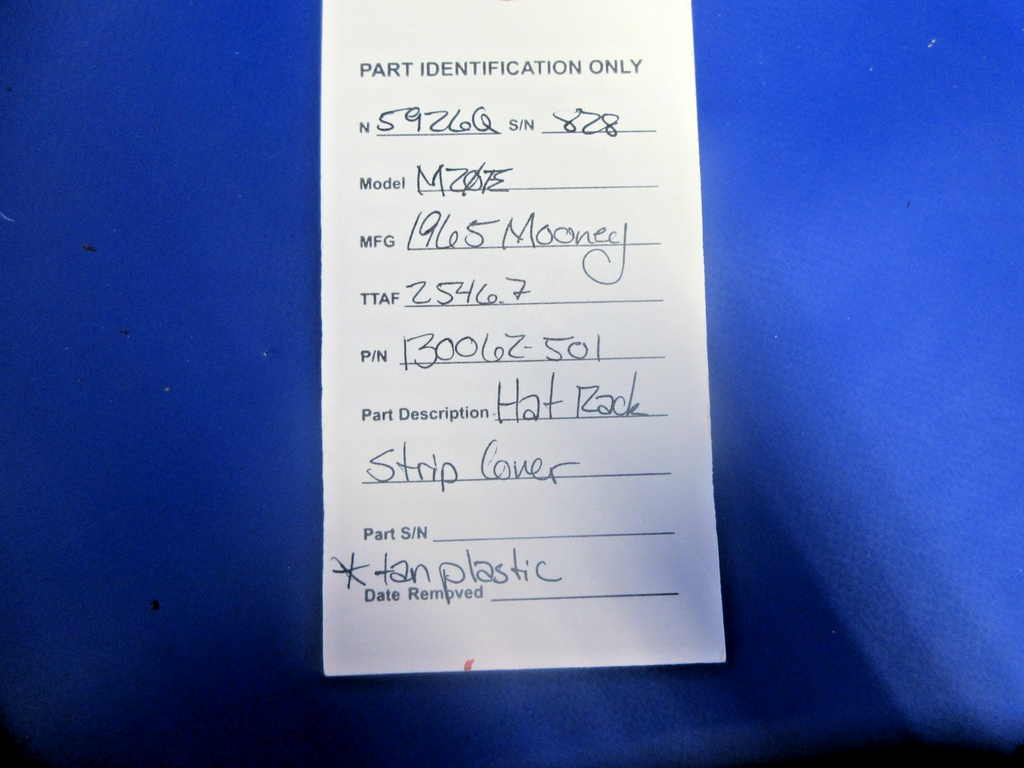 PART IDENTIFICATION ONLY
N 5926Q S/N 828
Model M20E
MFG 1965 Mooney
TTAF 2546.7
P/N 130062-501
Part Description Hat Rack
Strip Cover
Part S/N
* tan plastic
Date Removed